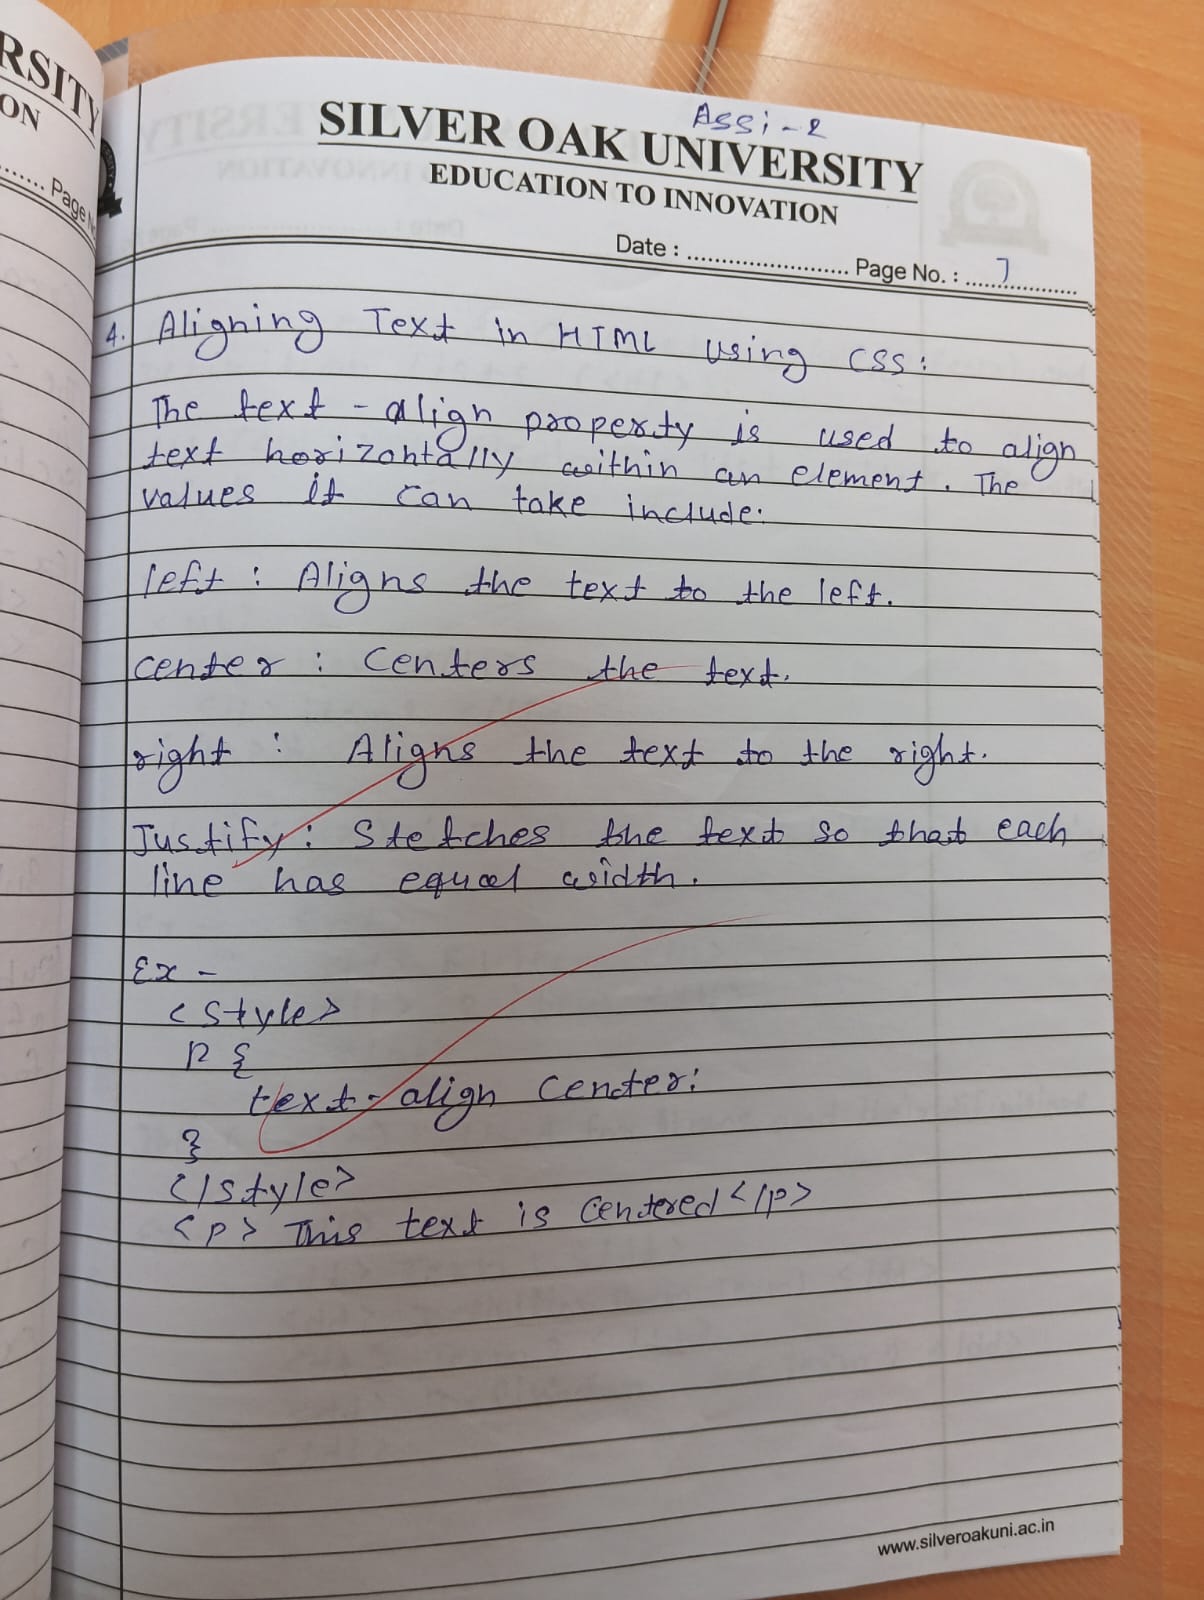 RSITY
ON
....... Page N
Assi-2
SILVER OAK UNIVERSITY
EDUCATION TO INNOVATION
Date : ........................ Page No. : 7
4. Aligning Text in HTML using CSS:
The text-align property is used to align
text horizontally within an element. The
values it can take include:
left : Aligns the text to the left.
center : Centers the text.
right : Aligns the text to the right.
Justify : Stetches the text so that each
line has equal width.
Ex -
<style>
p {
text-align center;
}
</style>
<p> This text is centered </p>
www.silveroakuni.ac.in